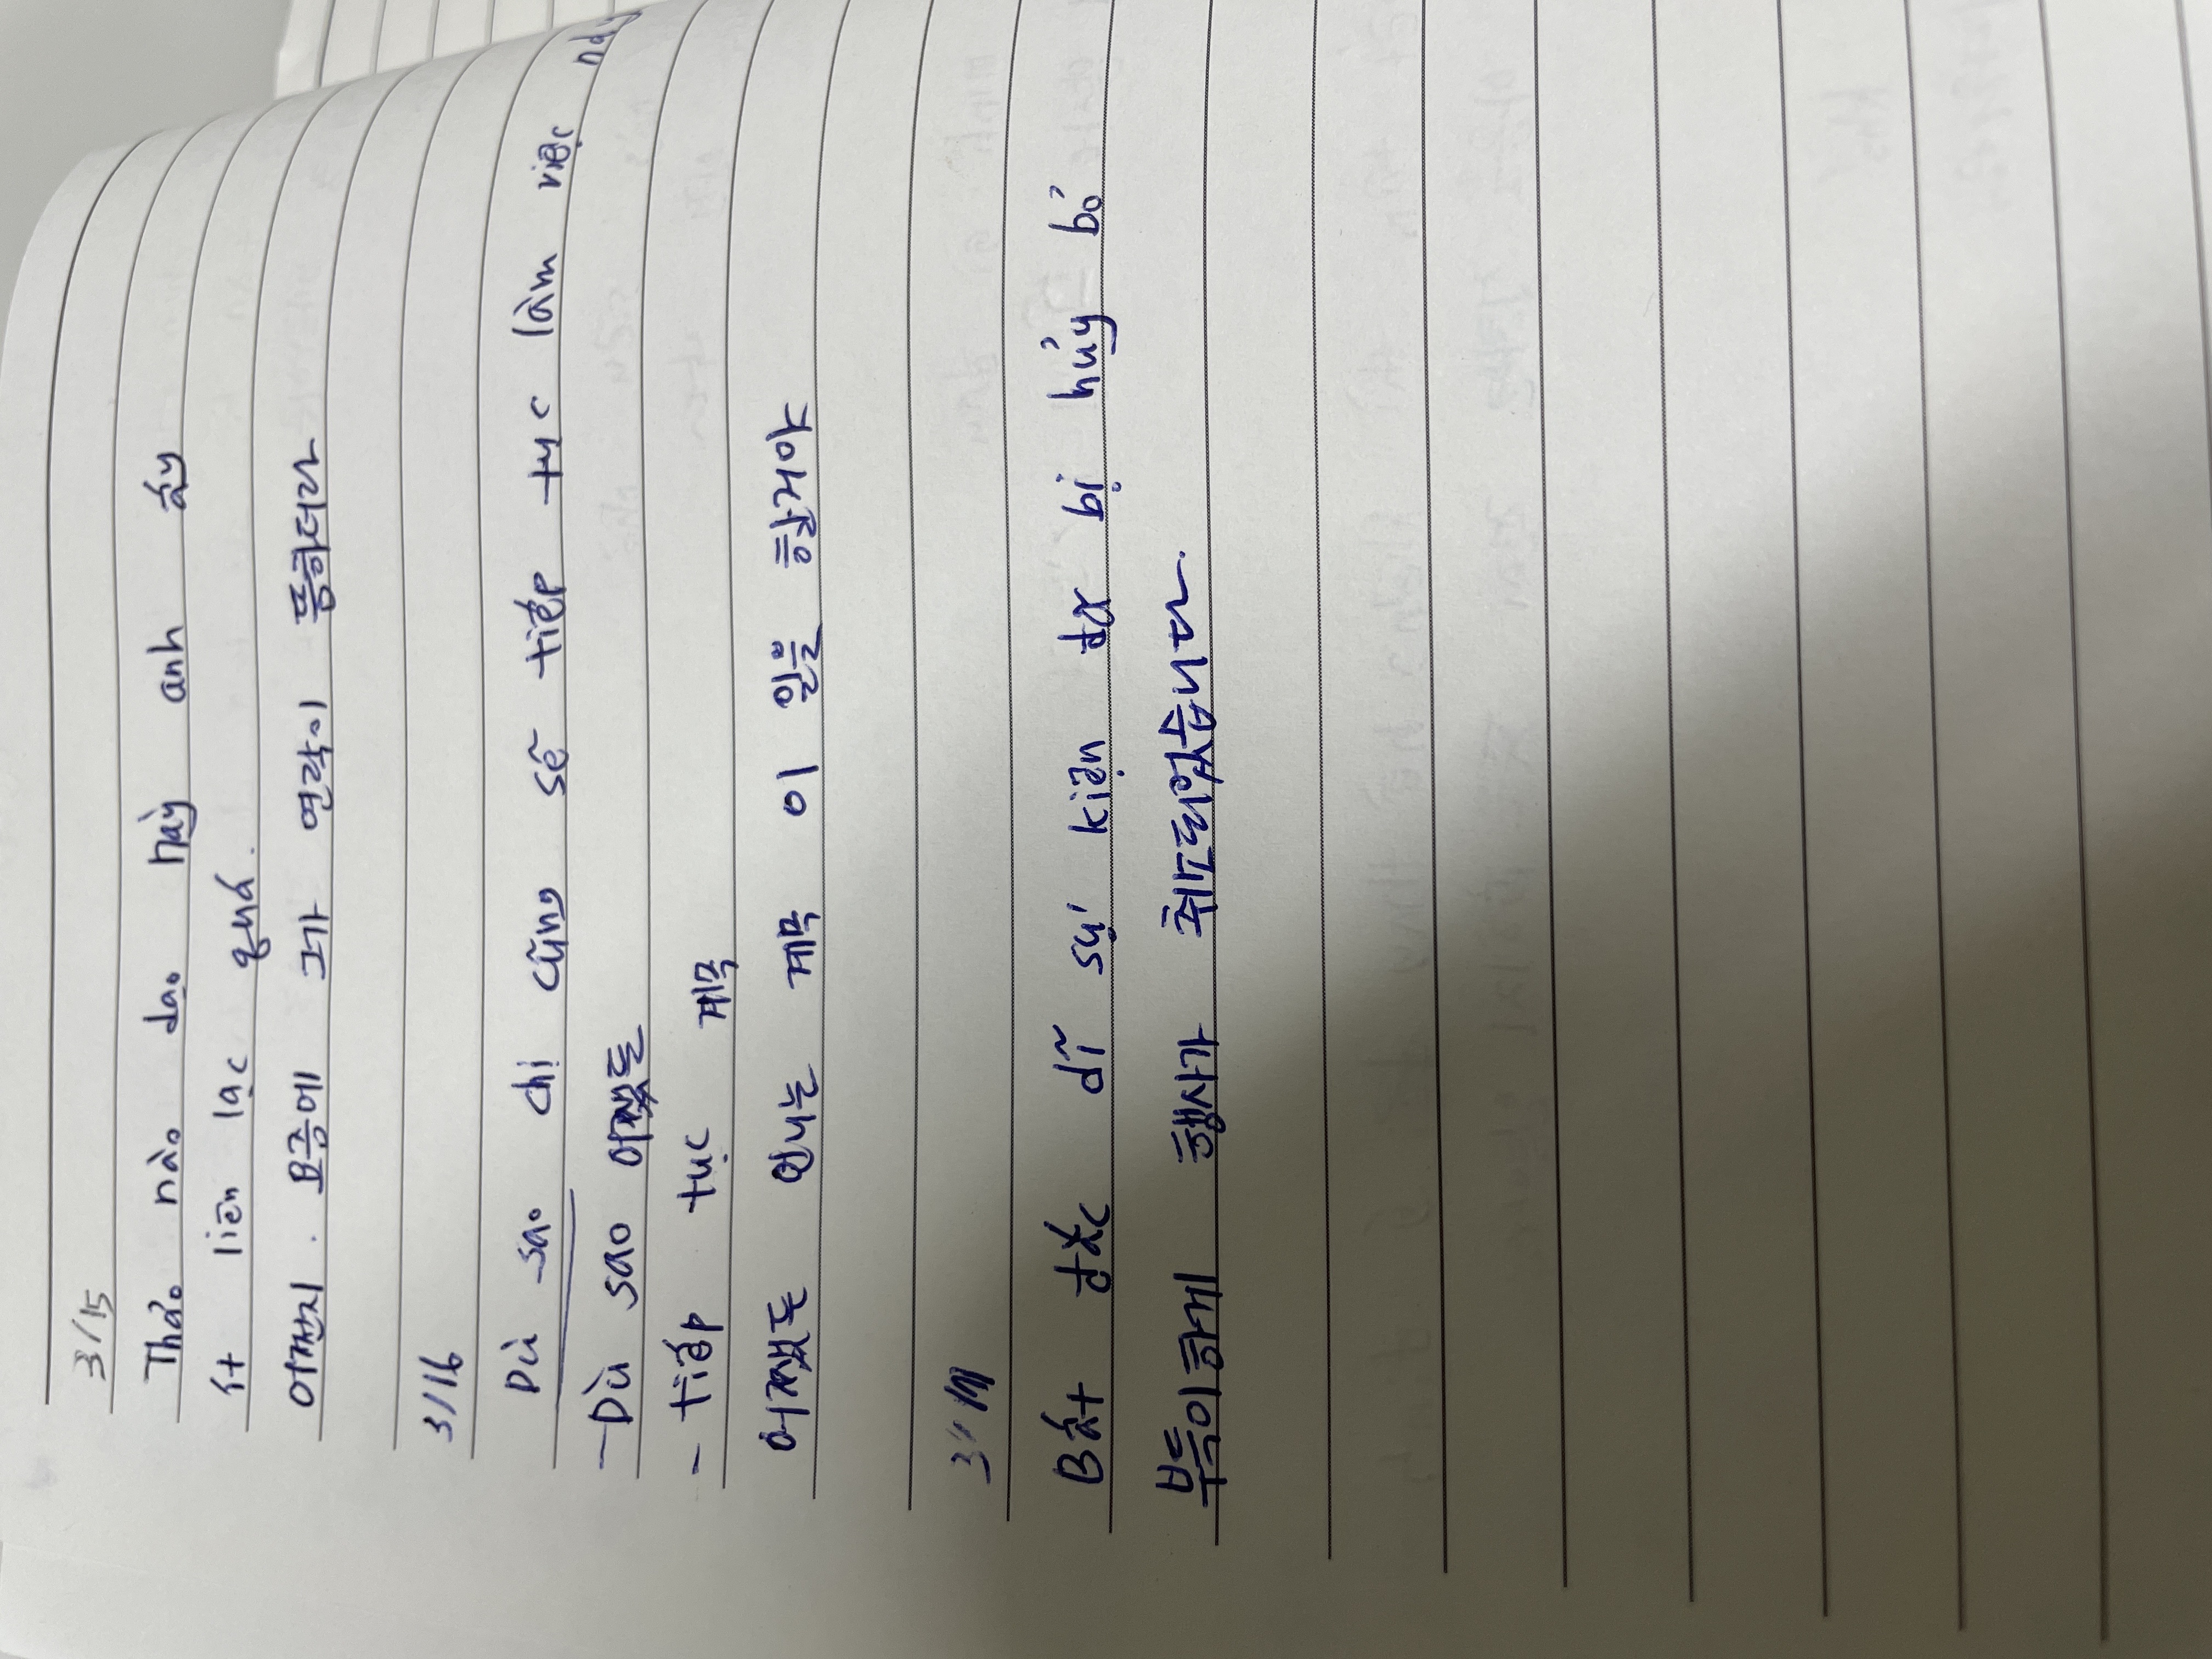 3/15
Thảo nào dạo này anh ấy
ít liên lạc quá.
어쩐지. 요즘에 그가 연락이 뜸하더라
3/16
Dù sao chị cũng sẽ tiếp tục làm việc này
-Dù sao 어쨌든
- tiếp tục 계속
어쨌든 언니는 계속 이 일을 할거야
Bất đắc dĩ sự kiện đã bị hủy bỏ
부득이하게 행사가 취소되었습니다